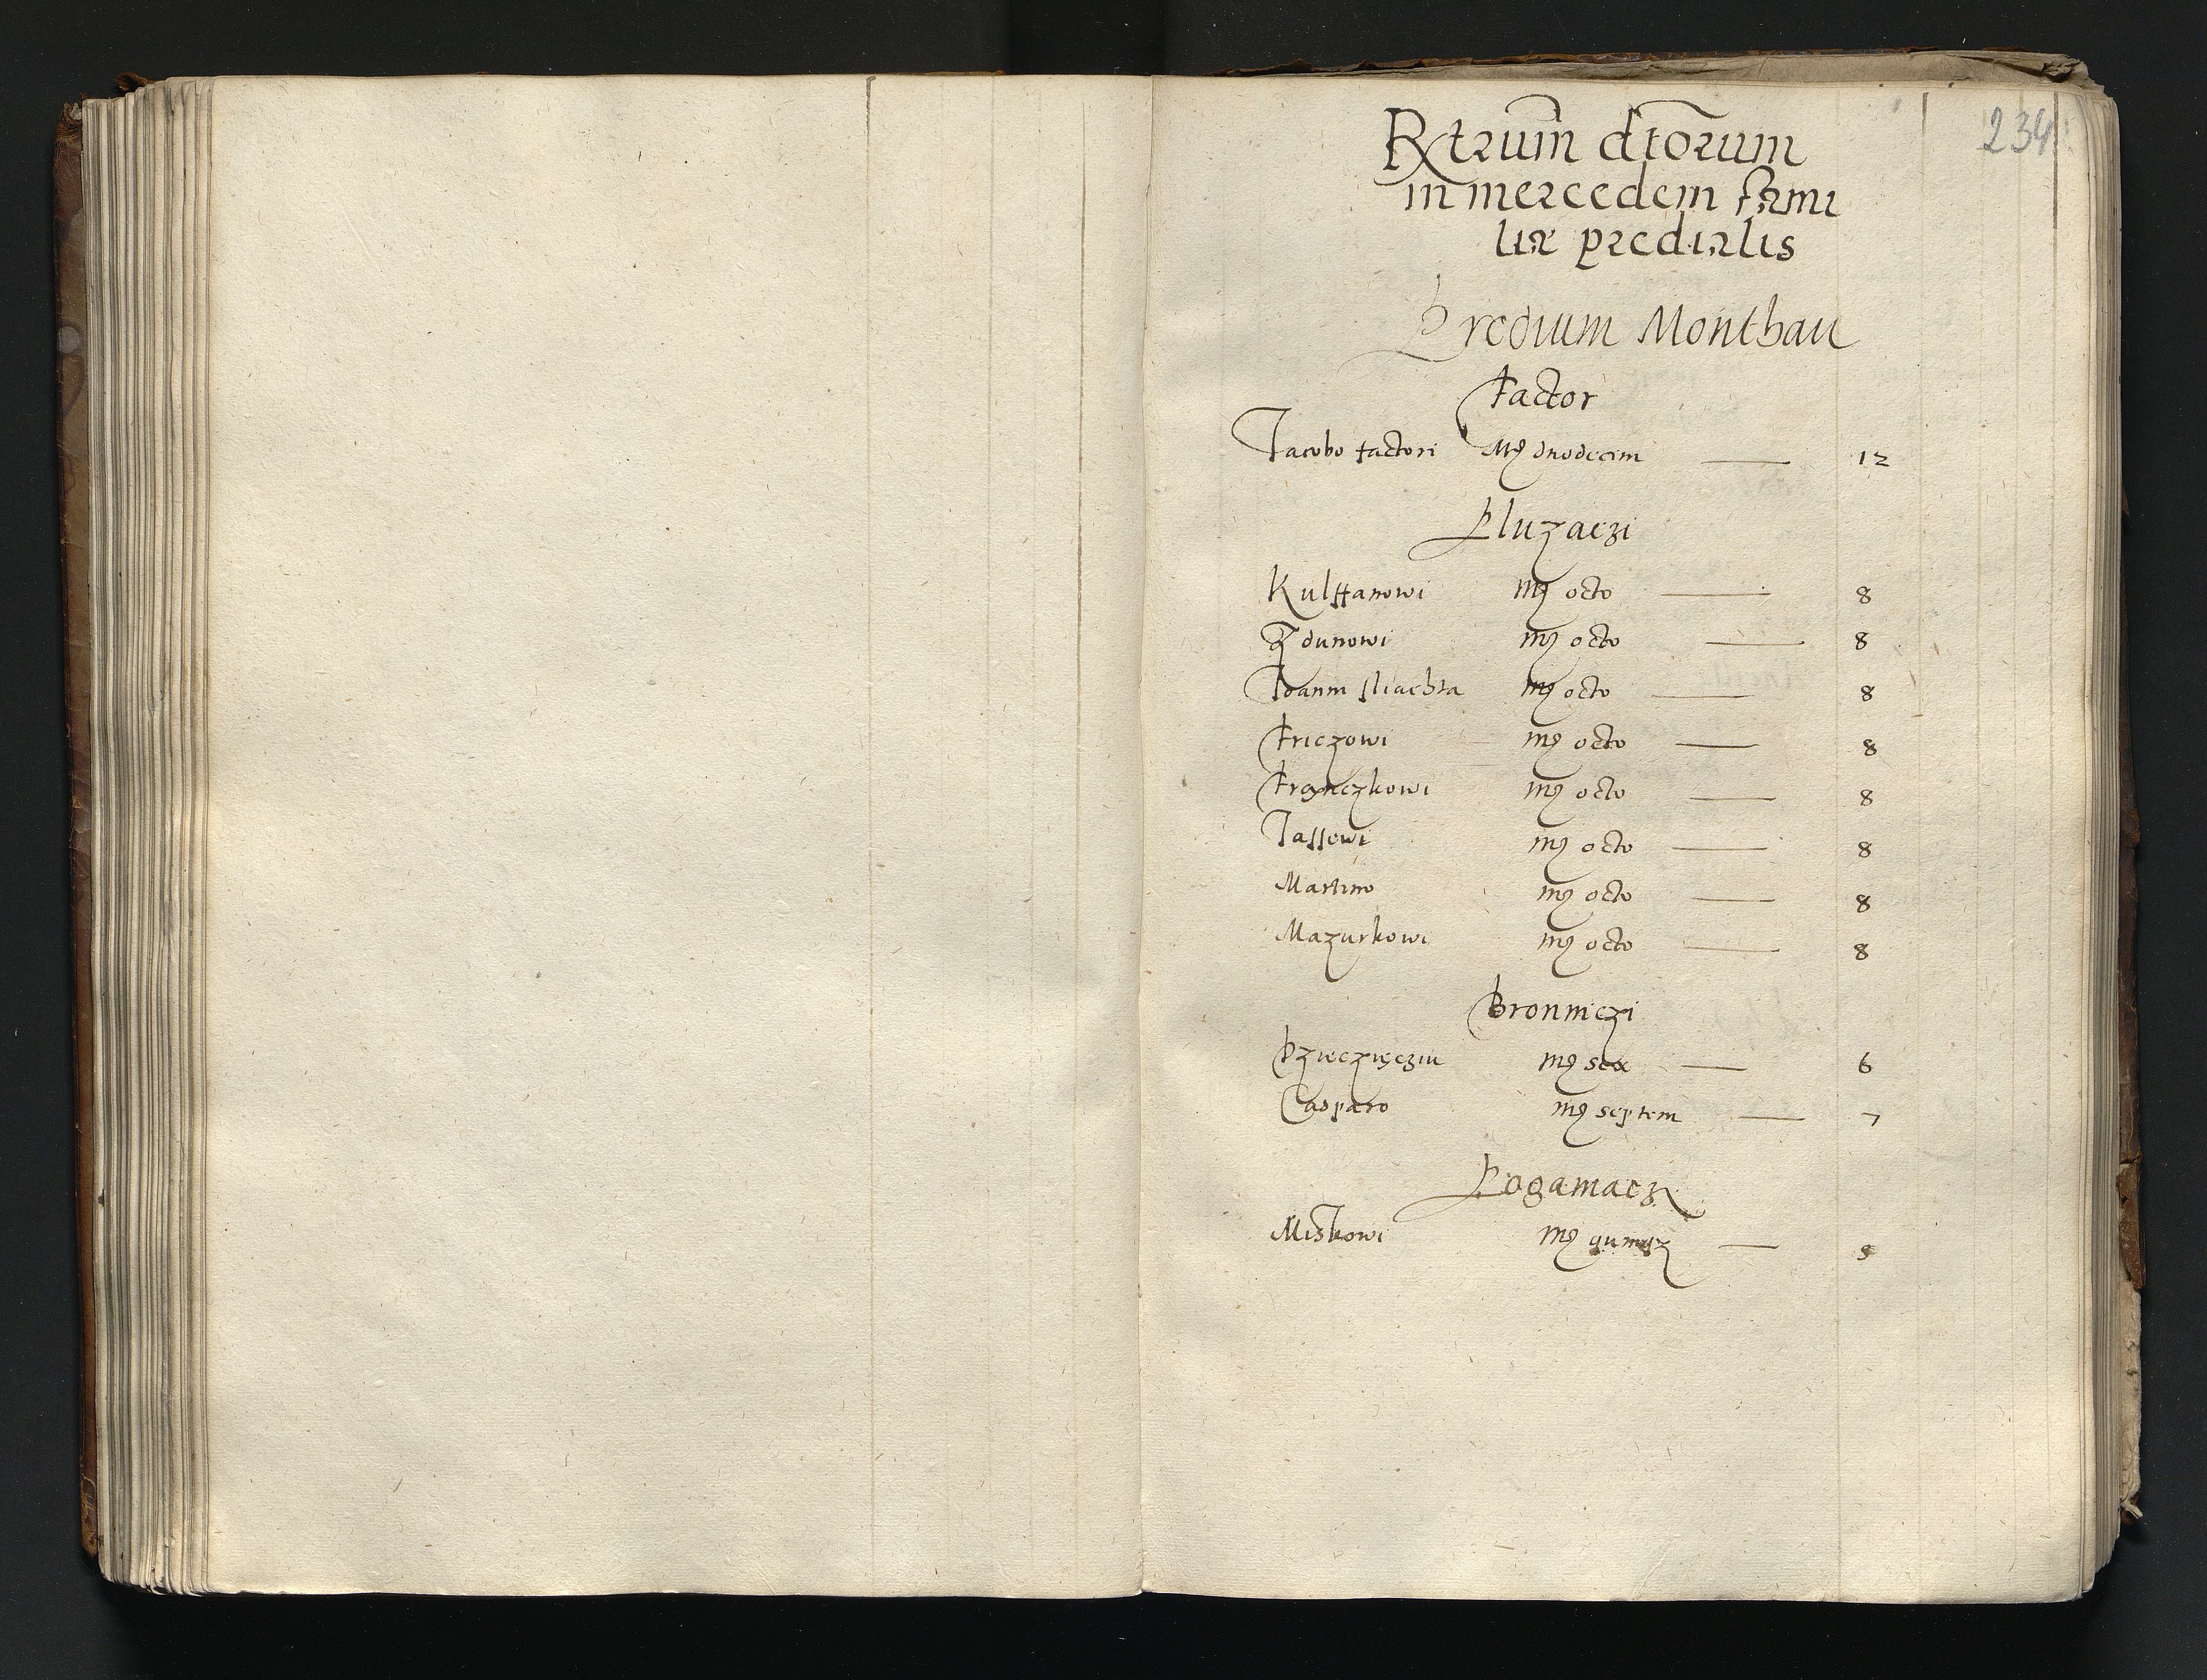 234
Rxtrum dtorum
in mercedem fami
liæ predialis
Predium Monthau
Factor
Jacobo factori Mg duodecim — 12
Pluzaczi
Kulssanowi mg octo — 8
Zdunowi mg octo — 8
Joanni sliachta mg octo — 8
Friczowi mg octo — 8
Franczkowi mg octo — 8
Jassewi mg octo — 8
Martino mg octo — 8
Mazurkowi mg octo — 8
Bronniczi
Dzieczięcziu mg sex — 6
Casparo mg septem — 7
Poganiacz
Miskowi mg — 5